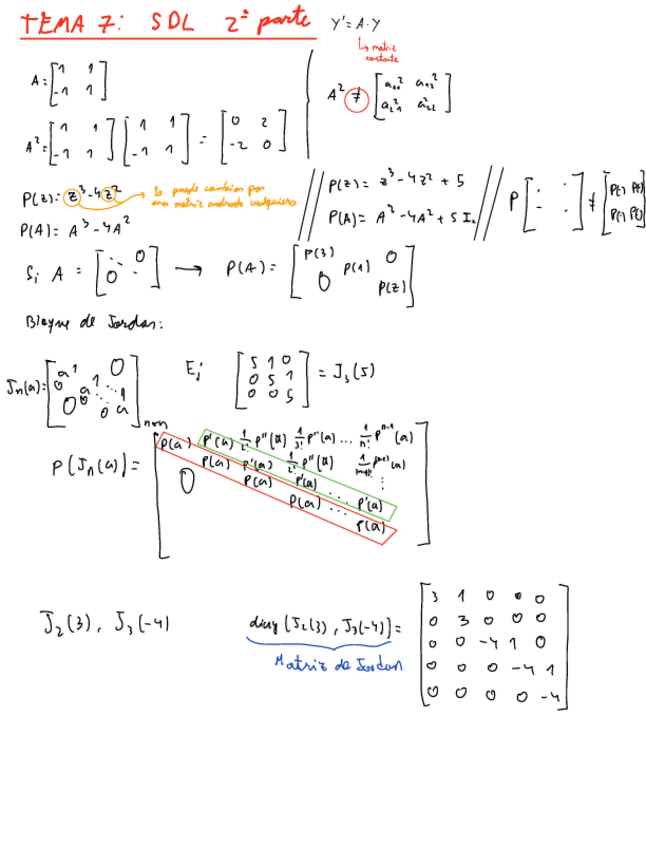 TEMA 7: SDL 2ª parte
Y' = A·Y
↳ matriz constante
A = [1 1; -1 1]
A² = [1 1; -1 1] [1 1; -1 1] = [0 2; -2 0]
A² ≠ [a₁₁² a₁₂²; a₂₁² a₂₂²]
P(z) = z³ - 4z² → Se puede cambiar por una matriz cuadrada cualquiera
P(A) = A³ - 4A²
P(z) = z³ - 4z² + 5
P(A) = A² - 4A² + 5I.
P[· ·; · ·] ≠ [P(·) P(·); P(·) P(·)]
Si A = [· 0; 0 ·] → P(A) = [P(3) 0; P(1); 0 P(z)]
Bloque de Jordan:
Jn(a) = [a 1 0; 0 a 1 ⋱; 0 ⋱ 1; 0 a] nxn
Ej [5 1 0; 0 5 1; 0 0 5] = J₃(5)
P(Jn(a)) =
P(a) P'(a) 1/2! P''(a) 1/3! P'''(a) ... 1/n! Pⁿ⁻¹(a)
P(a) P'(a) 1/2! P''(a)
0 P(a) P'(a) ⋮
P(a) ... P'(a)
P(a)
J₂(3), J₃(-4)
diag(J₂(3), J₃(-4)) =
Matriz de Jordan
3 1 0 0 0
0 3 0 0 0
0 0 -4 1 0
0 0 0 -4 1
0 0 0 0 -4